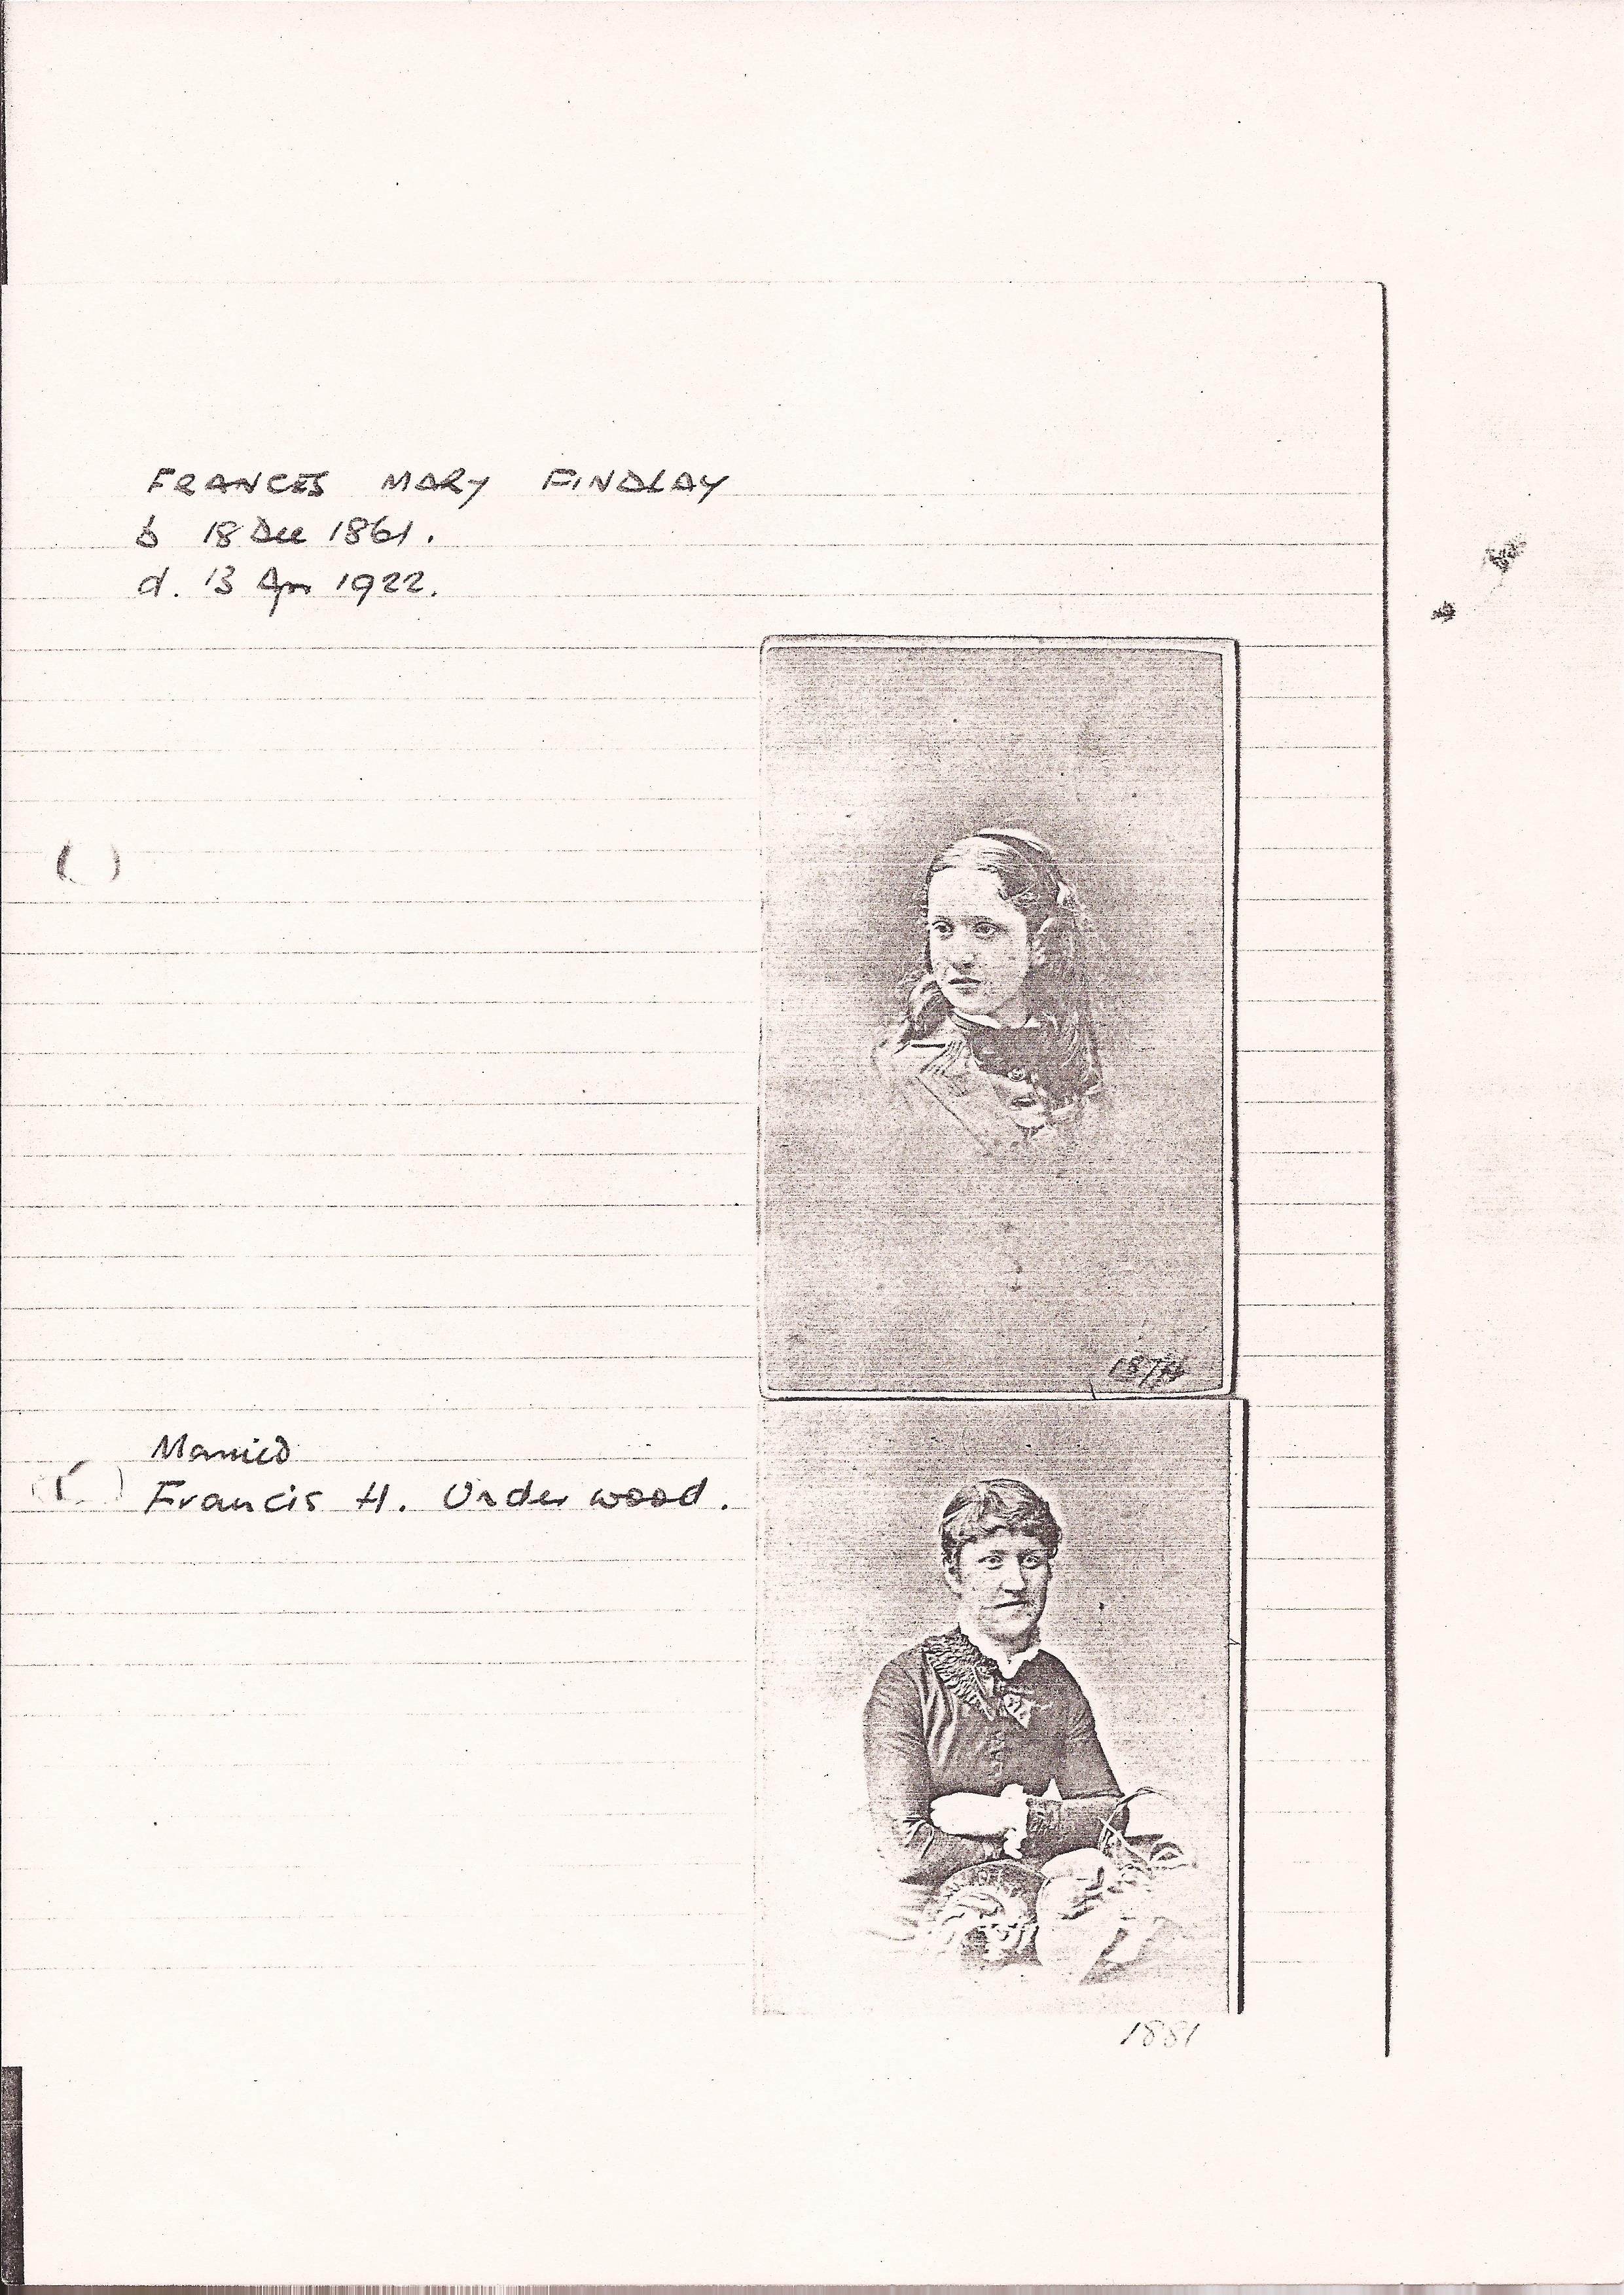 FRANCES MARY FINDLAY
b 18 Dec 1861.
d. 13 Apr 1922.
Married
Francis H. Underwood.
1881